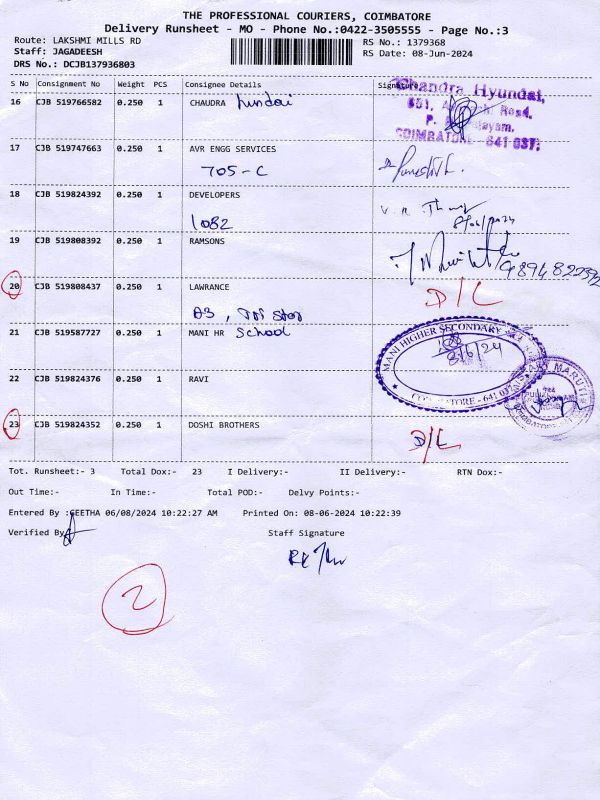 THE PROFESSIONAL COURIERS, COIMBATORE
Delivery Runsheet - MO - Phone No.:0422-3505555 - Page No.:3
Route: LAKSHMI MILLS RD
RS No.: 1379368
Staff: JAGADEESH
RS Date: 08-Jun-2024
DRS No.: DCJB137936803
S No Consignment No Weight PCS Consignee Details Signature
16 CJB 519766582 0.250 1 CHAUDRA hundai
Chandra Hyundai,
Road,
P.
COIMBATORE - 641 037.
17 CJB 519747663 0.250 1 AVR ENGG SERVICES
705-C
18 CJB 519824392 0.250 1 DEVELOPERS
1082
19 CJB 519808392 0.250 1 RAMSONS
20 CJB 519808437 0.250 1 LAWRANCE
D/L
21 CJB 519587727 0.250 1 MANI HR School
MANI HIGHER SECONDARY
8/6/24
COIMBATORE - 641 037
22 CJB 519824376 0.250 1 RAVI
MARUTI
23 CJB 519824352 0.250 1 DOSHI BROTHERS
D/L
Tot. Runsheet:- 3 Total Dox:- 23 I Delivery:- II Delivery:- RTN Dox:-
Out Time:- In Time:- Total POD:- Delvy Points:-
Entered By :GEETHA 06/08/2024 10:22:27 AM Printed On: 08-06-2024 10:22:39
Verified By
Staff Signature
2